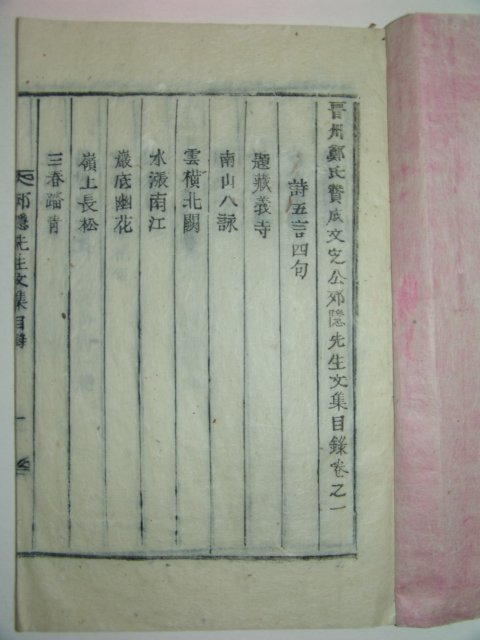 晋州鄭氏贊成文定公郊隠先生文集目錄卷之一
詩五言四句
題藏義寺
南山八詠
雲橫北闕
水漲南江
巖底幽花
嶺上長松
三春踏青
郊隠先生文集目錄 一